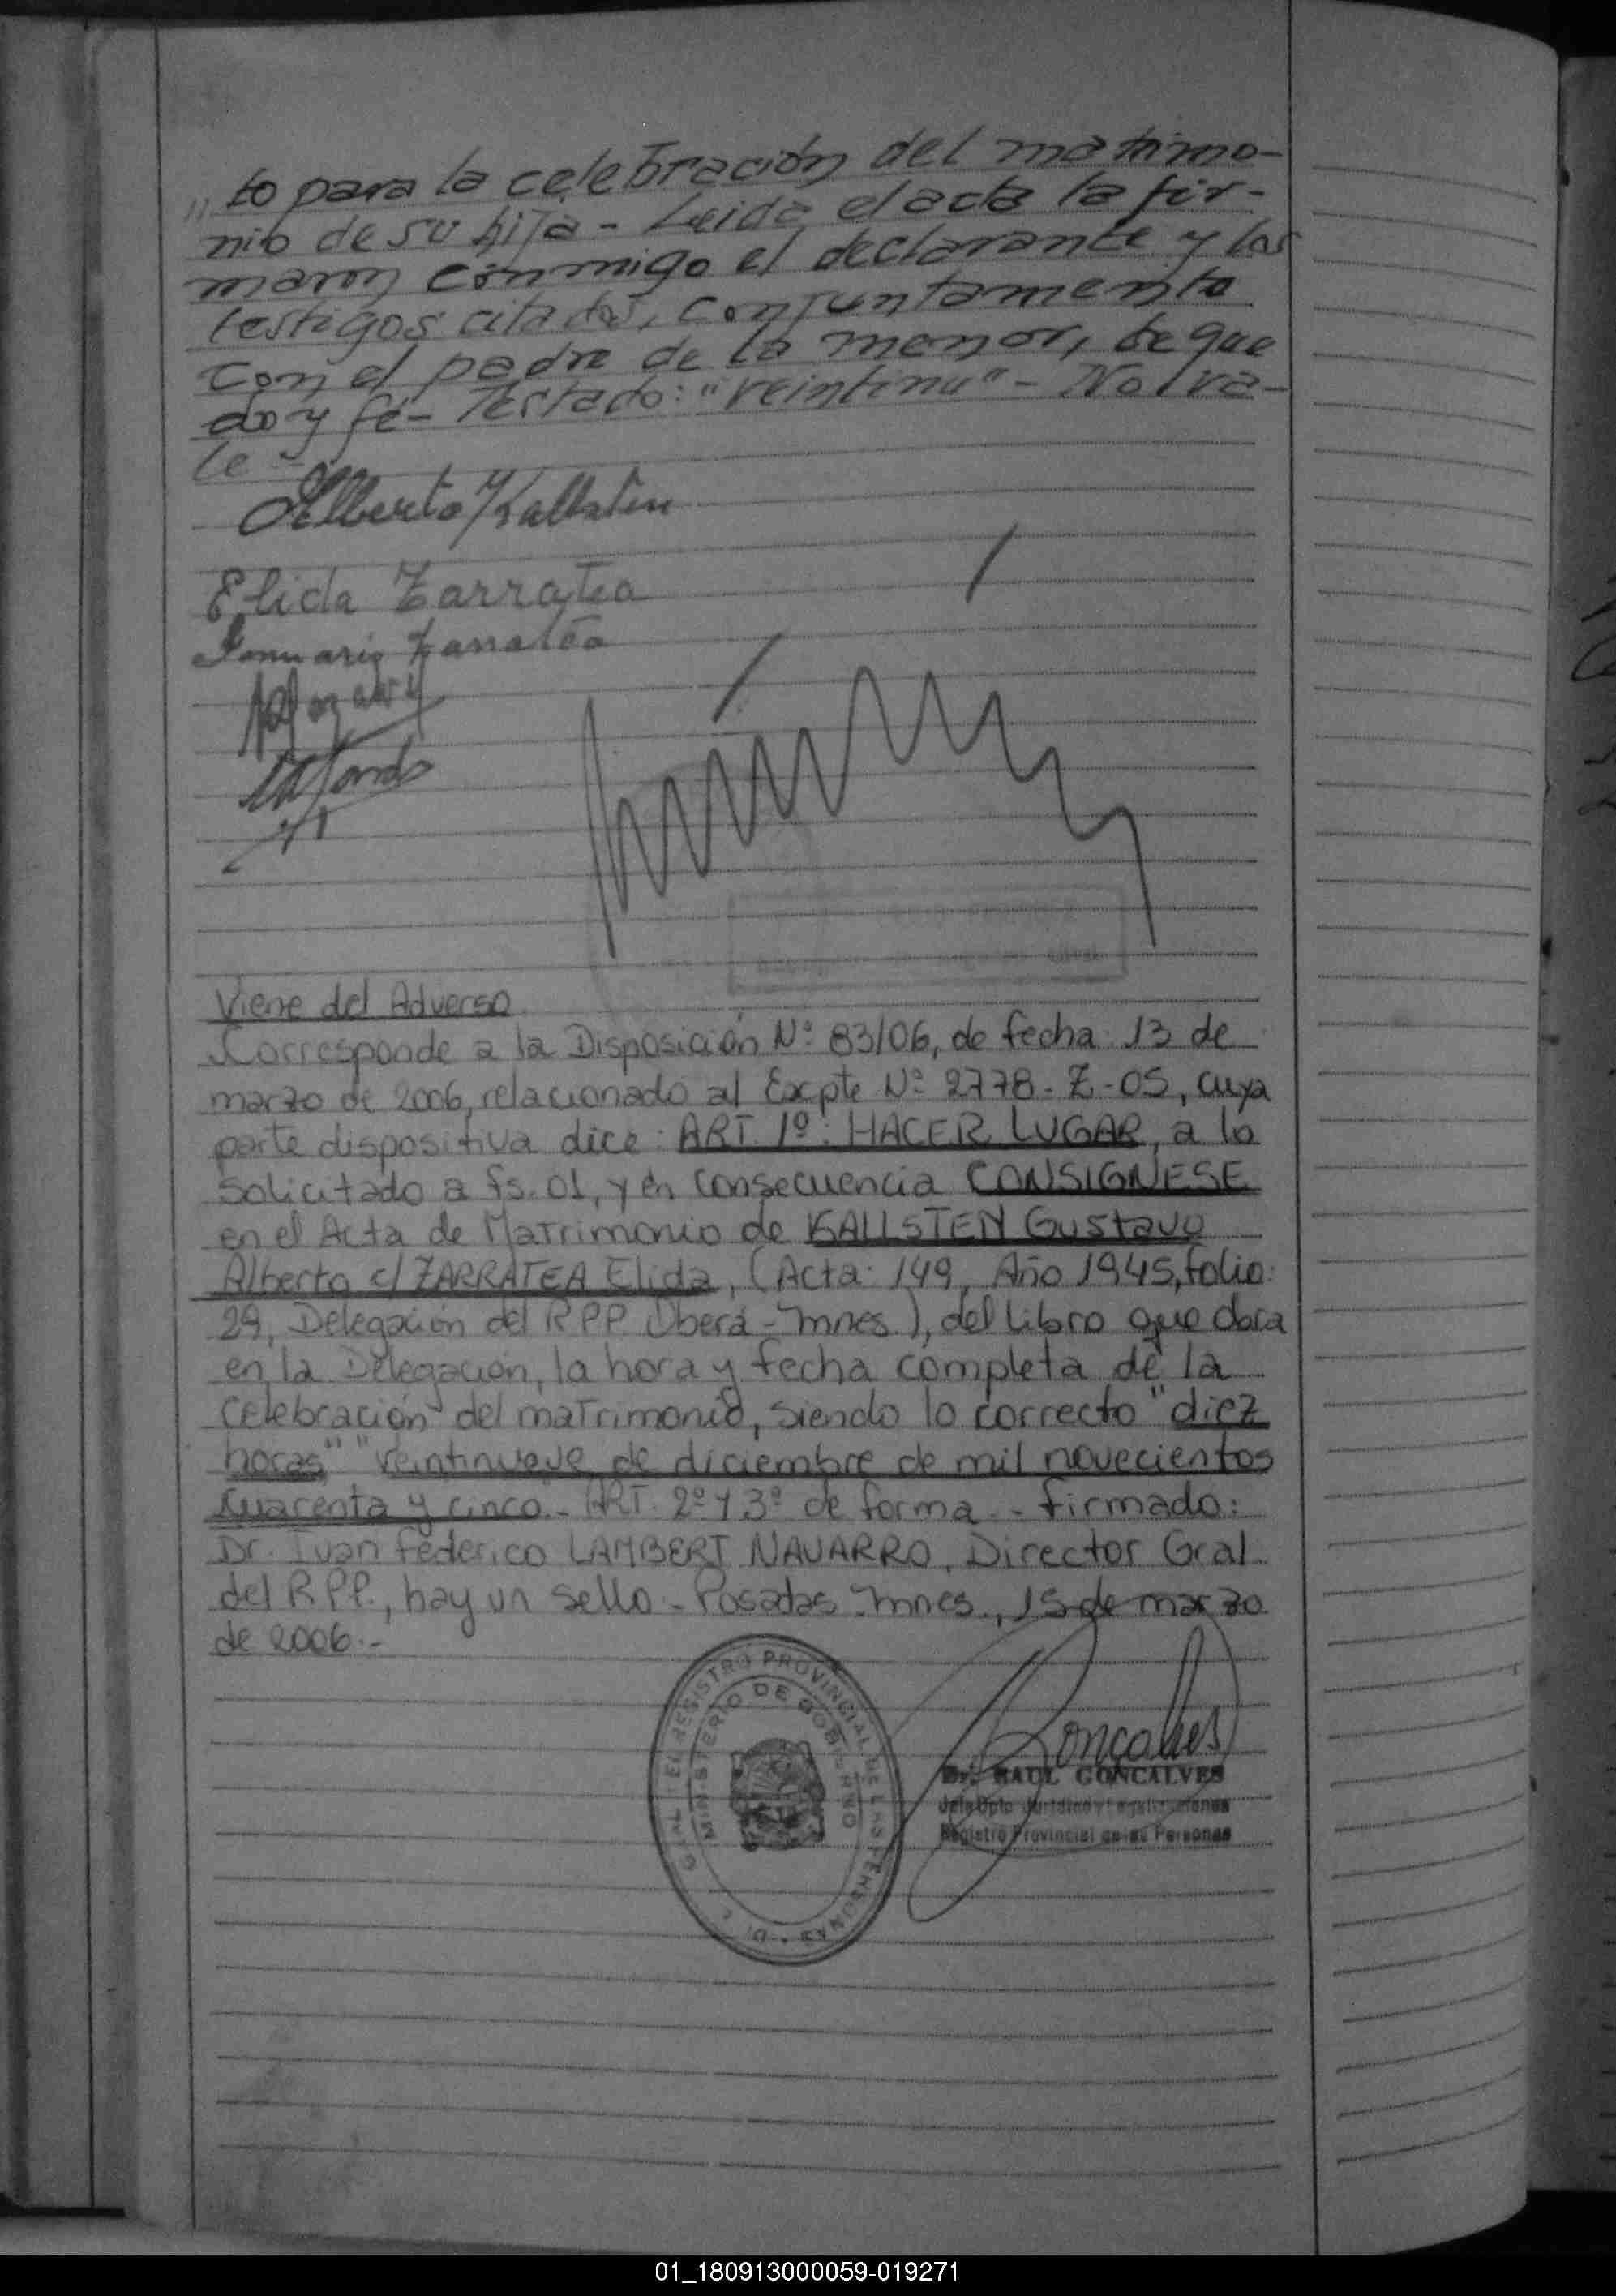 " to para la celebración del matrimo-
nio de su hija - Leida el acta la fir-
maron conmigo el declarante y los
testigos citados, conjuntamente
con el padre de la menor, de que
doy fé - Testado: "veintinu" - No va-
le -
Alberto Kallsten
Elida Zarratea
Januario Zarratea
Viene del Adverso
Corresponde a la Disposición Nº 83/06, de fecha 13 de
marzo de 2006, relacionado al Expte Nº 2778-Z-05, cuya
parte dispositiva dice: ART. 1º: HACER LUGAR, a lo
solicitado a fs. 01, y en consecuencia CONSIGNESE
en el Acta de Matrimonio de KALLSTEN Gustavo
Alberto c/ ZARRATEA Elida, (Acta: 149, Año 1945, folio:
29, Delegación del RPP Oberá - Mnes.), del libro que obra
en la Delegación, la hora y fecha completa de la
celebración del matrimonio, siendo lo correcto "diez
horas" "veintinueve de diciembre de mil novecientos
cuarenta y cinco".- ART. 2º y 3º de forma.- firmado:
Dr. Ivan Federico LAMBERT NAVARRO, Director Gral.
del RPP., hay un sello - Posadas - Mnes., 15 de marzo
de 2006.-
GRAL DEL REGISTRO PROVINCIAL DE LAS PERSONAS
MINISTERIO DE GOBIERNO
Gonçalves
Dr. RAUL GONCALVES
Jefe Dpto Juridico y Legalizaciones
Registro Provincial de las Personas
01_180913000059-019271